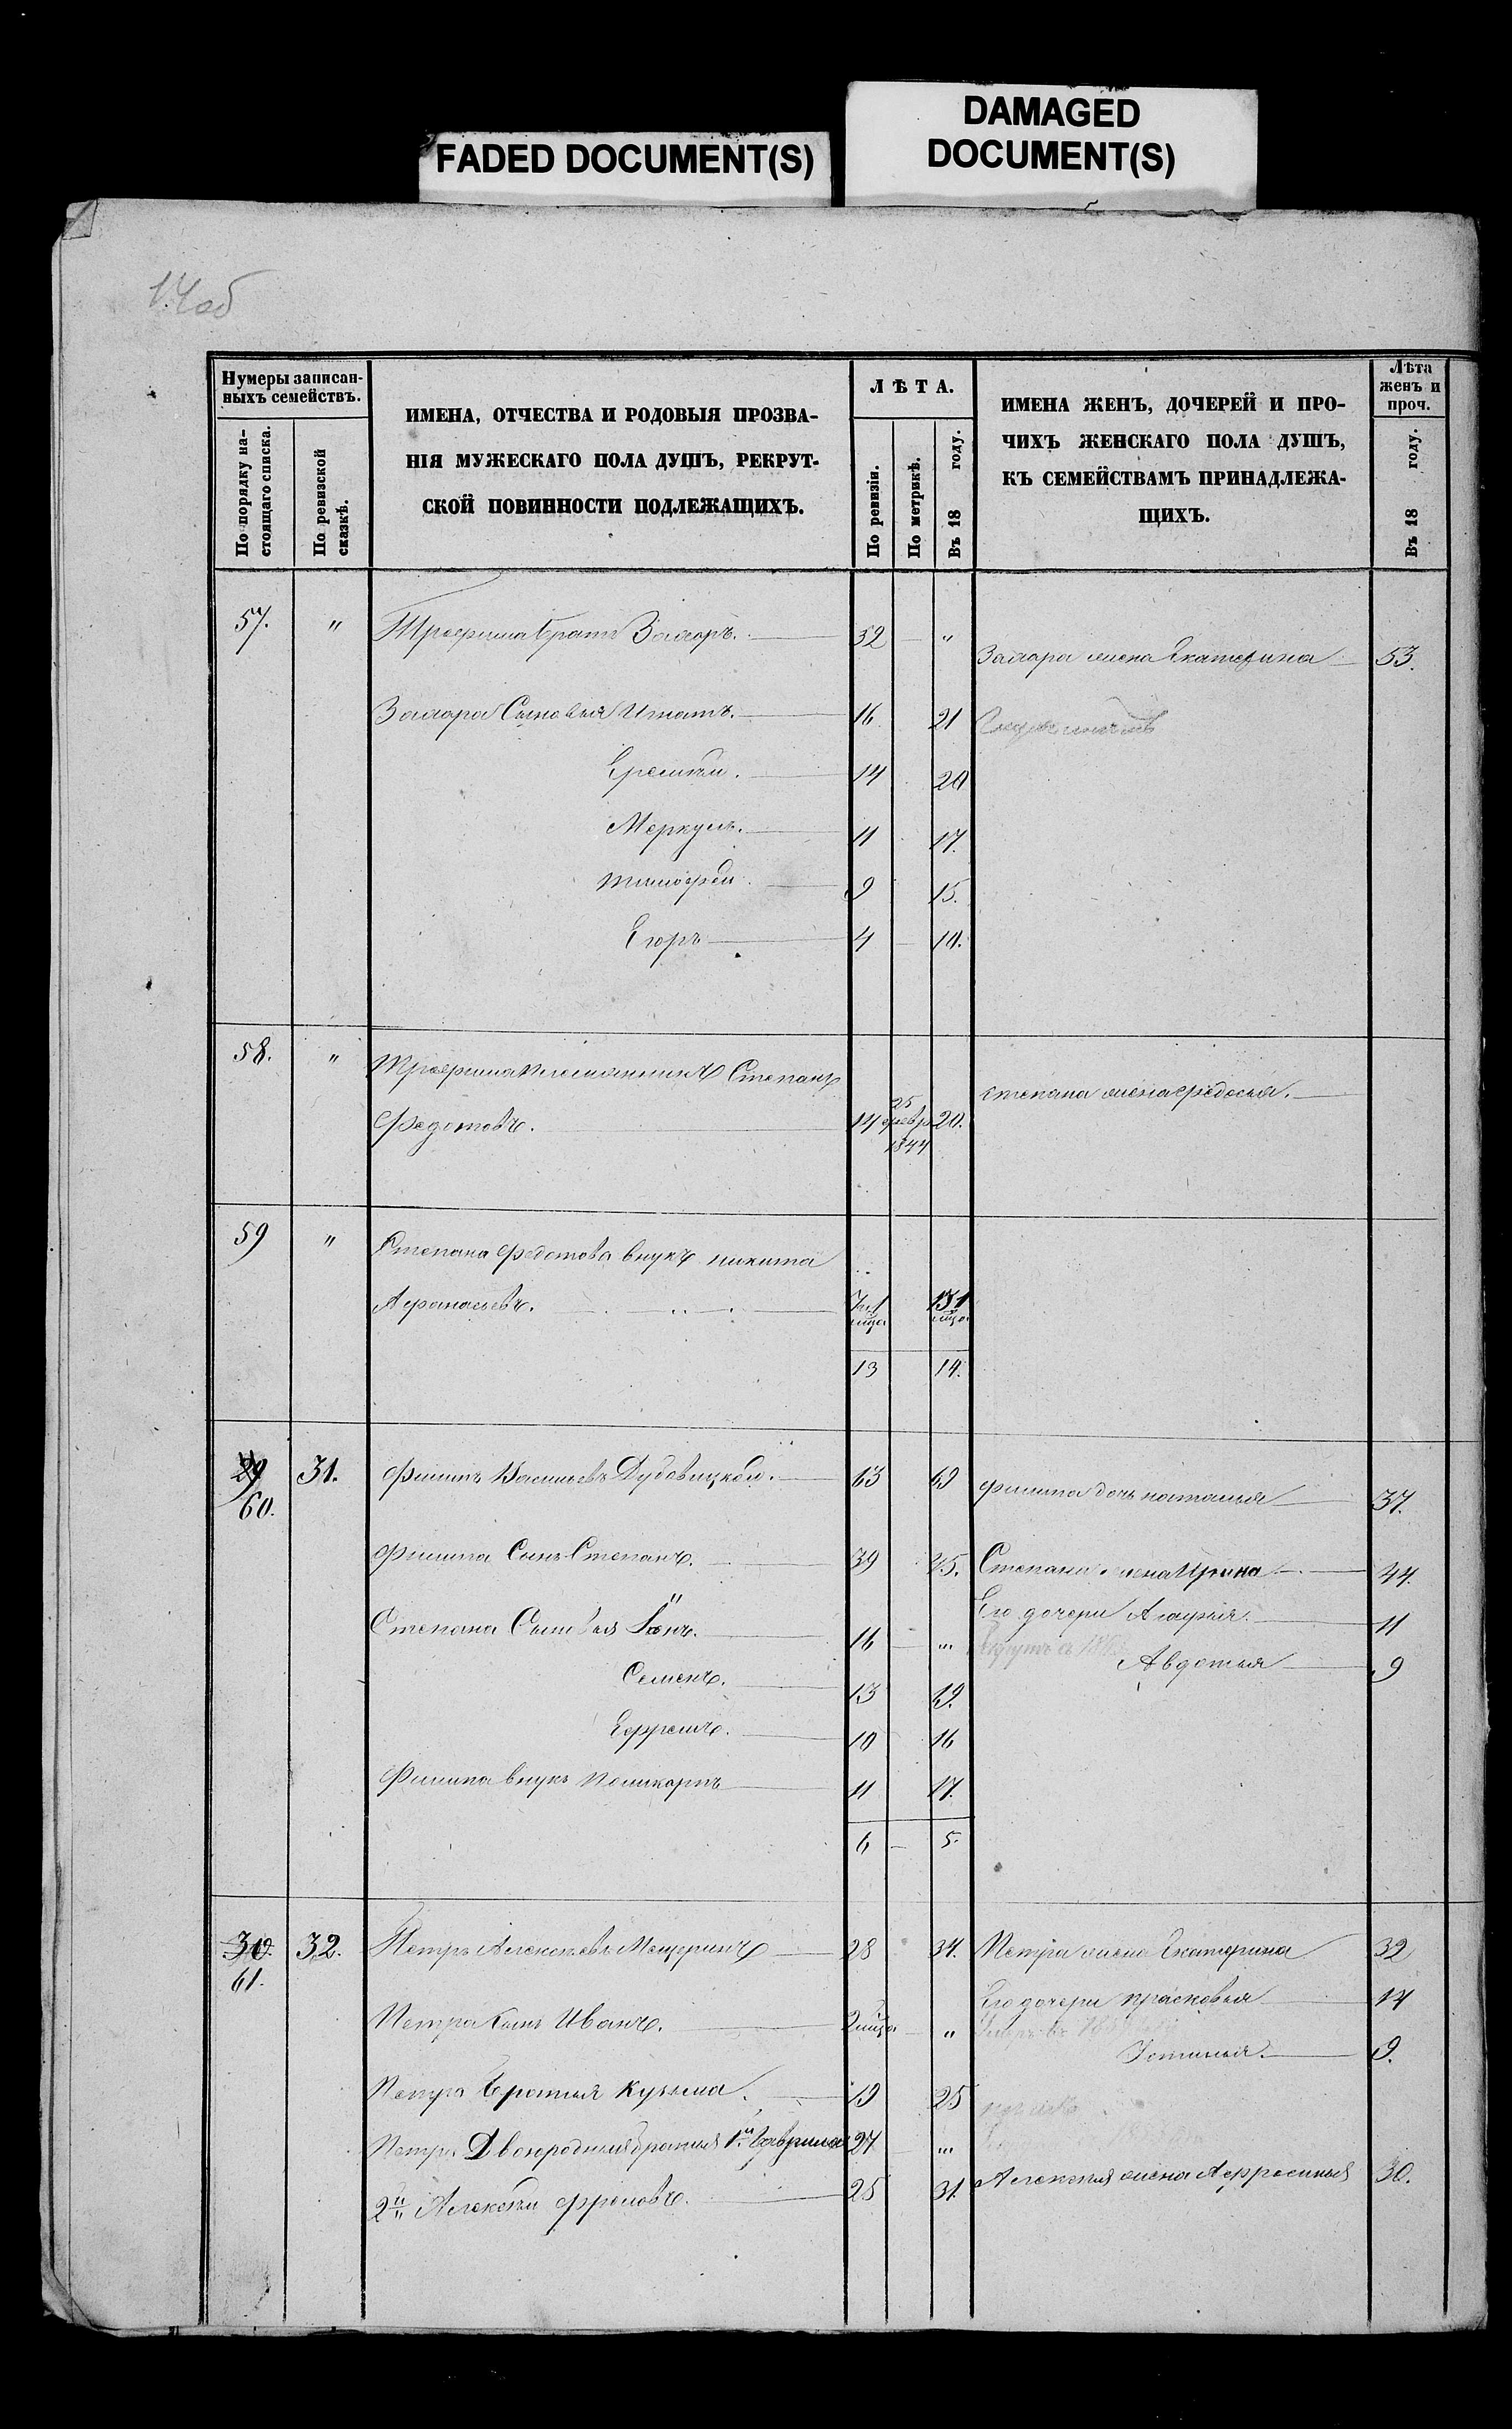 FADED DOCUMENT(S)
DAMAGED
DOCUMENT(S)
14об
Нумеры записан-
ныхъ семействъ.
По порядку на-
стоящаго списка.
По ревизской
сказкѣ.
ИМЕНА, ОТЧЕСТВА И РОДОВЫЯ ПРОЗВА-
НІЯ МУЖЕСКАГО ПОЛА ДУШЪ, РЕКРУТ-
СКОЙ ПОВИННОСТИ ПОДЛЕЖАЩИХЪ.
ЛѢТА.
По ревизіи.
По метрикѣ.
Въ 18 году.
ИМЕНА ЖЕНЪ, ДОЧЕРЕЙ И ПРО-
ЧИХЪ ЖЕНСКАГО ПОЛА ДУШЪ,
КЪ СЕМЕЙСТВАМЪ ПРИНАДЛЕЖА-
ЩИХЪ.
Лѣта
женъ и
проч.
Въ 18 году.
57. " Трофима братъ Захаръ. 52 "
Захара жена Екатерина 53.
Захара Сыновья Игнатъ. 16 21
Еремѣй. 14 20
Меркулъ. 11 17.
Тимофей. 9 15.
Егоръ 4 10.
58. " Трофима племянникъ Степанъ
Федотовъ. 14 25 февр 1844 20.
Степана жена Федосья.
59 " Степана Федотова внукъ Никита
Афанасьевъ.
13 14.
29 31. Филипъ Васильевъ Дубовицкой. 63 69
60.
Филипа дочь Наталья 37.
Филипа Сынъ Степанъ. 39 45. Степана жена Ирина 44.
Его дочери Агафья. 11
Степана Сыновья 16 "
Авдотья 9
Семенъ. 13 19.
Ефремъ. 10 16
Филипа внукъ Поликарпъ 11 17.
6 5.
30. 32. Петръ Алексѣевъ Мещеринъ 28 34. Петра жена Екатерина 32
61.
Его дочери Прасковья 14
Петра Сынъ Иванъ. 2 мца "
Устинья. 9.
Петра братья Кузьма. 19 25
Петра Двоюродныя братья 1й Гаврила 27 "
2й Алексѣй Фроловъ. 25 31. Алексѣя жена Афросинья 30.